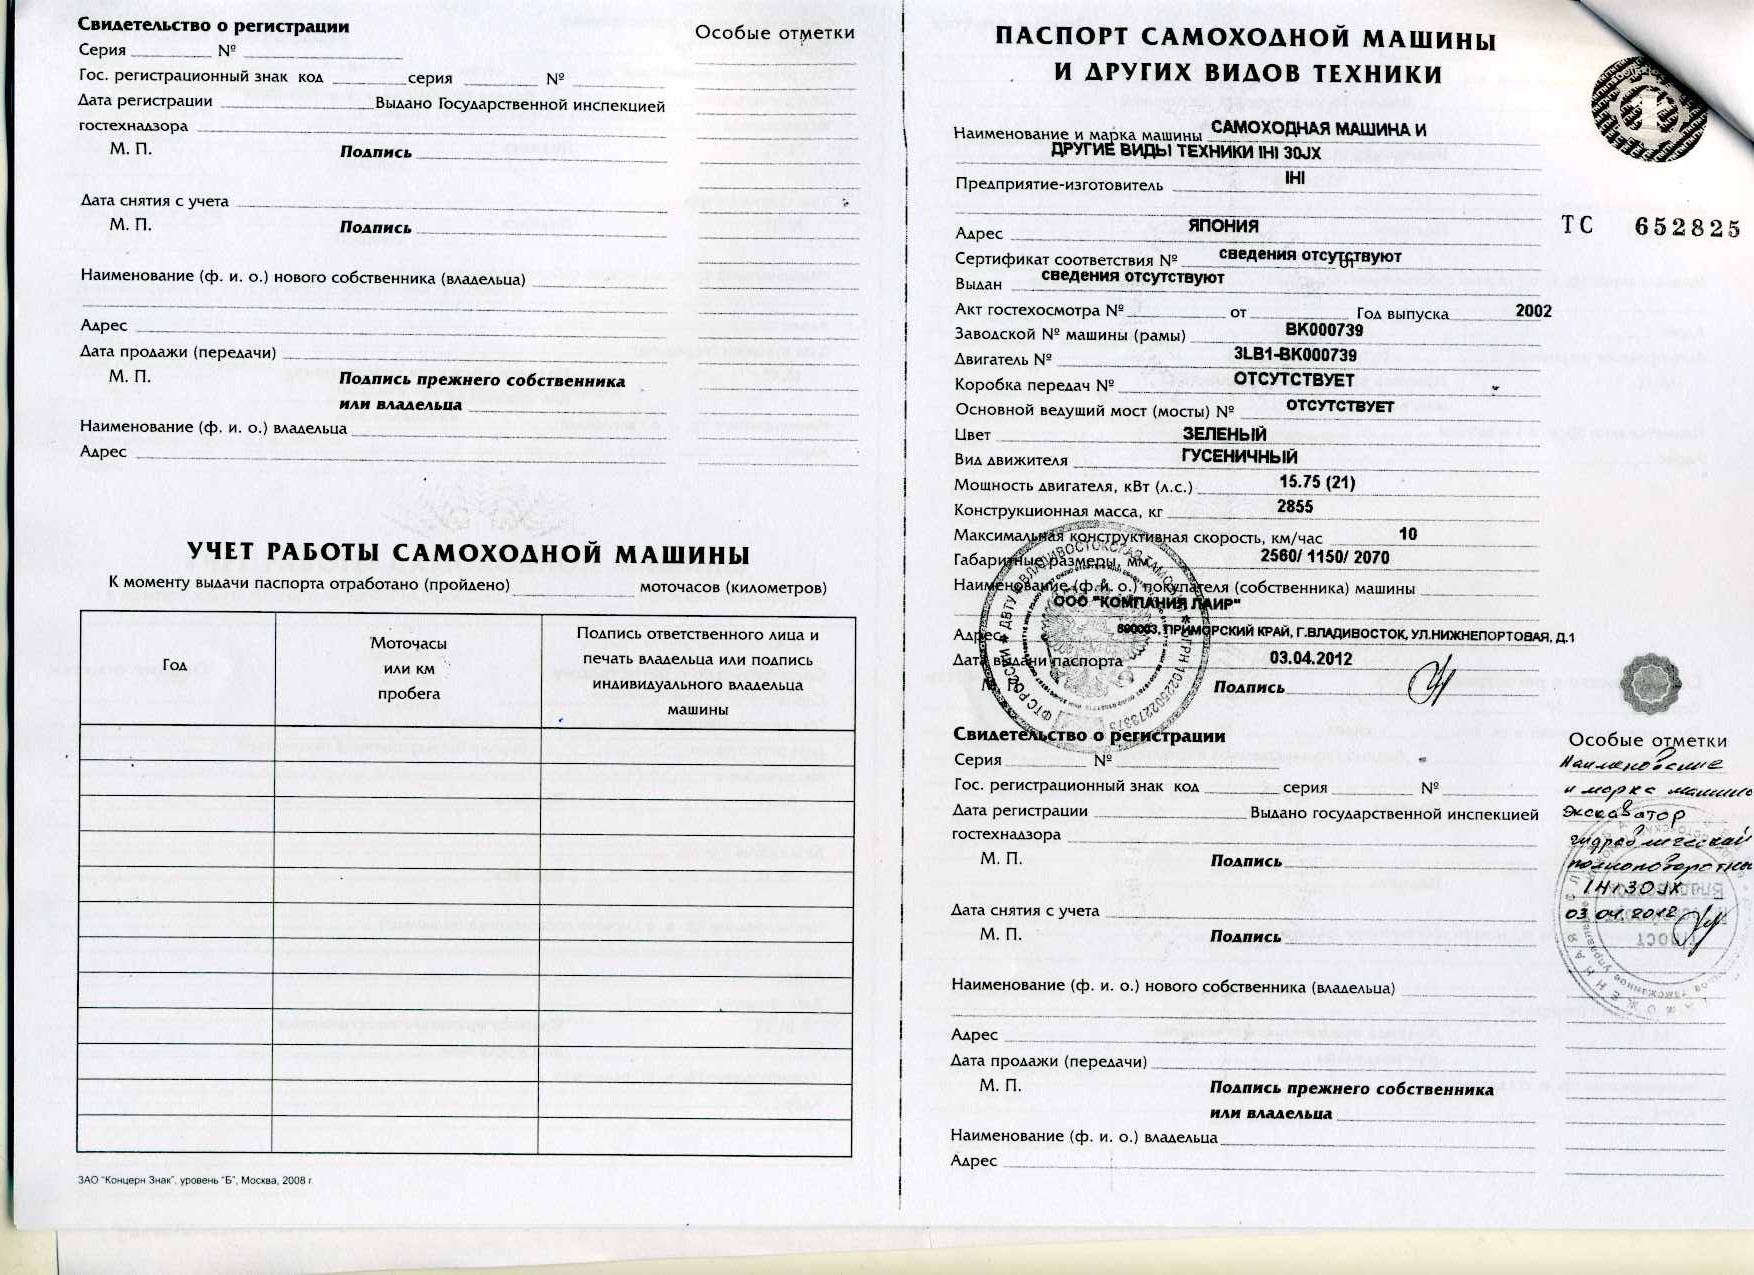 Свидетельство о регистрации
Серия № 
Гос. регистрационный знак код серия №
Дата регистрации Выдано Государственной инспекцией
гостехнадзора
М. П. Подпись
Дата снятия с учета
М. П. Подпись
Наименование (ф. и. о.) нового собственника (владельца)
Адрес
Дата продажи (передачи)
М. П. Подпись прежнего собственника
или владельца
Наименование (ф. и. о.) владельца
Адрес
Особые отметки
УЧЕТ РАБОТЫ САМОХОДНОЙ МАШИНЫ
К моменту выдачи паспорта отработано (пройдено) моточасов (километров)
Год
Моточасы
или км
пробега
Подпись ответственного лица и
печать владельца или подпись
индивидуального владельца
машины
ЗАО "Концерн Знак", уровень "Б", Москва, 2008 г
ПАСПОРТ САМОХОДНОЙ МАШИНЫ
И ДРУГИХ ВИДОВ ТЕХНИКИ
Наименование и марка машины САМОХОДНАЯ МАШИНА И
ДРУГИЕ ВИДЫ ТЕХНИКИ IHI 30JX
Предприятие-изготовитель IHI
ТС 652825
Адрес ЯПОНИЯ
Сертификат соответствия № сведения отсутствуют
Выдан сведения отсутствуют
Акт гостехосмотра № от Год выпуска 2002
Заводской № машины (рамы) BK000739
Двигатель № 3LB1-BK000739
Коробка передач № ОТСУТСТВУЕТ
Основной ведущий мост (мосты) № ОТСУТСТВУЕТ
Цвет ЗЕЛЕНЫЙ
Вид движителя ГУСЕНИЧНЫЙ
Мощность двигателя, кВт (л.с.) 15.75 (21)
Конструкционная масса, кг 2855
Максимальная конструктивная скорость, км/час 10
Габаритные размеры, мм 2560/ 1150/ 2070
Наименование (ф. и. о.) покупателя (собственника) машины
ООО "КОМПАНИЯ ЛАИР"
Адрес 690003, ПРИМОРСКИЙ КРАЙ, Г.ВЛАДИВОСТОК, УЛ.НИЖНЕПОРТОВАЯ, Д.1
Дата выдачи паспорта 03.04.2012
Подпись
Свидетельство о регистрации
Серия №
Гос. регистрационный знак код серия №
Дата регистрации Выдано государственной инспекцией
гостехнадзора
М. П. Подпись
Дата снятия с учета
М. П. Подпись
Наименование (ф. и. о.) нового собственника (владельца)
Адрес
Дата продажи (передачи)
М. П. Подпись прежнего собственника
или владельца
Наименование (ф. и. о.) владельца
Адрес
Особые отметки
Наименование
и марка машины
экскаватор
гидравлический
полноповоротный
IHI 30JX
03.04.2012